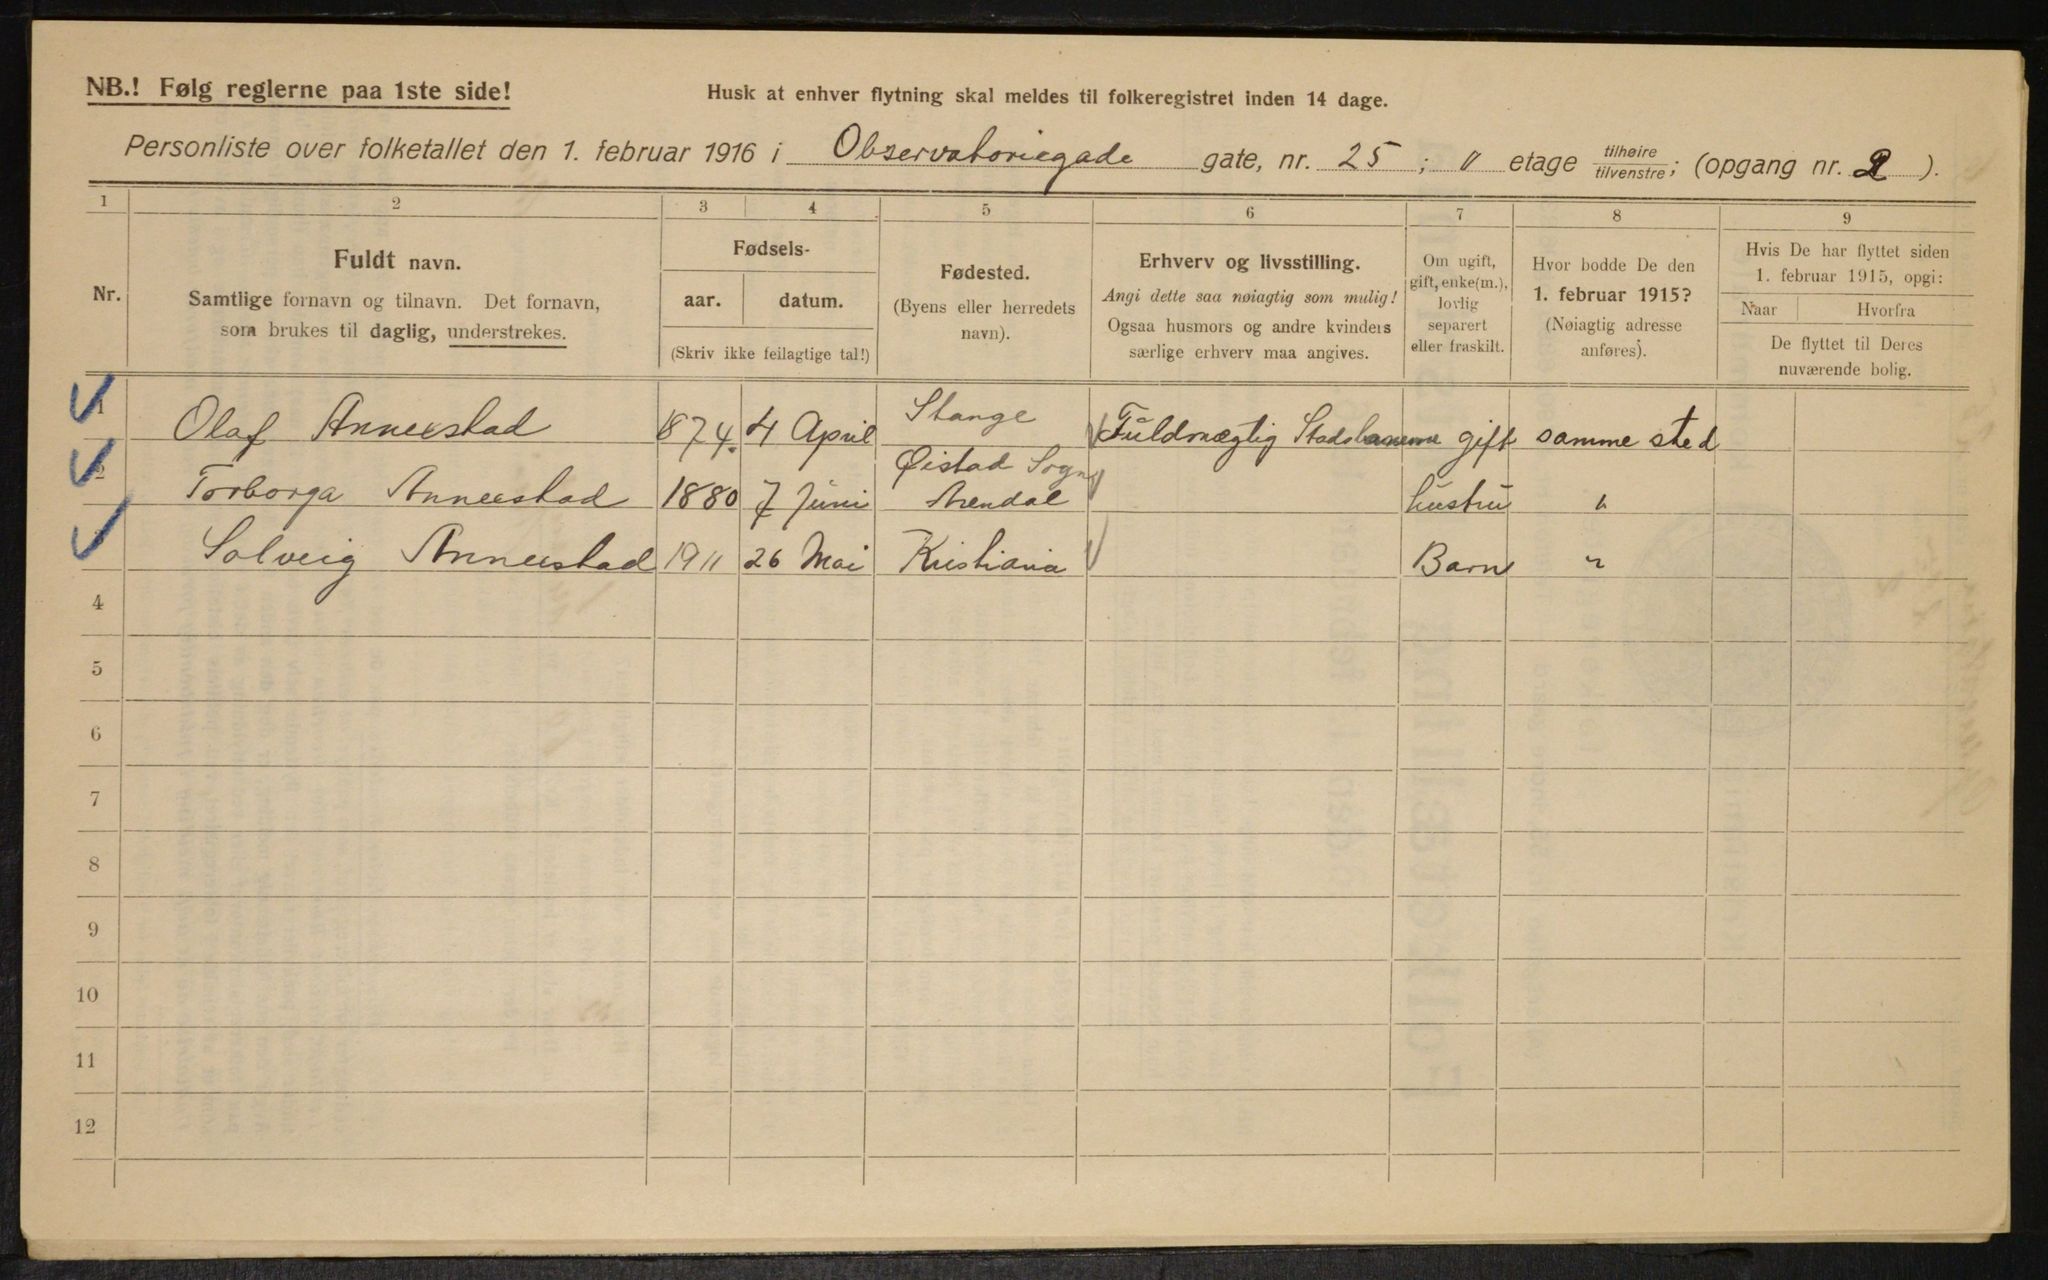 NB.! Følg reglerne paa 1ste side!
Husk at enhver flytning skal meldes til folkeregistret inden 14 dage.
Personliste over folketallet den 1. februar 1916 i Observatoriegade gate, nr. 25 ; etage tilhøire/tilvenstre; (opgang nr. 2 ).
1 2 3 4 5 6 7 8 9
Nr.
Fuldt navn.
Samtlige fornavn og tilnavn. Det fornavn,
som brukes til daglig, understrekes.
Fødsels-
aar. datum.
(Skriv ikke feilagtige tal!)
Fødested.
(Byens eller herredets
navn).
Erhverv og livsstilling.
Angi dette saa nøiagtig som mulig!
Ogsaa husmors og andre kvinders
særlige erhverv maa angives.
Om ugift,
gift, enke(m.),
lovlig
separert
eller fraskilt.
Hvor bodde De den
1. februar 1915?
(Nøiagtig adresse
anføres).
Hvis De har flyttet siden
1. februar 1915, opgi:
Naar Hvorfra
De flyttet til Deres
nuværende bolig.
1 Olaf Annerstad 1874. 4 April Stange Fuldmægtig Stadsbanerne gift samme sted
2 Torborga Annerstad 1880 7 Juni Øistad Sogn Arendal hustru "
Solveig Annerstad 1911 26 Mai Kristiania Barn "
4
5
6
7
8
9
10
11
12